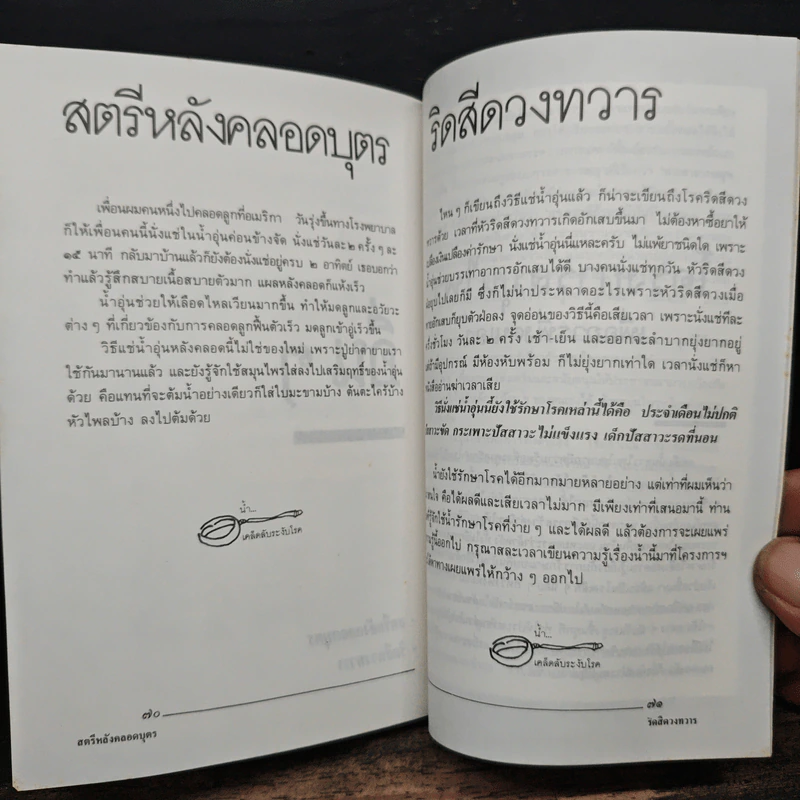 สตรีหลังคลอดบุตร
เพื่อนผมคนหนึ่งไปคลอดลูกที่อเมริกา วันรุ่งขึ้นทางโรงพยาบาล
ก็ให้เพื่อนคนนี้นั่งแช่ในน้ำอุ่นค่อนข้างจัด นั่งแช่วันละ ๒ ครั้ง ๆ ละ
๑๕ นาที กลับมาบ้านแล้วก็ยังต้องนั่งแช่อยู่ครบ ๒ อาทิตย์ เธอบอกว่า
ทำแล้วรู้สึกสบายเนื้อสบายตัวมาก แผลหลังคลอดก็แห้งเร็ว
น้ำอุ่นช่วยให้เลือดไหลเวียนมากขึ้น ทำให้มดลูกและอวัยวะ
ต่าง ๆ ที่เกี่ยวข้องกับการคลอดลูกฟื้นตัวเร็ว มดลูกเข้าอู่เร็วขึ้น
วิธีแช่น้ำอุ่นหลังคลอดนี้ไม่ใช่ของใหม่ เพราะปู่ย่าตายายเรา
ใช้กันมานานแล้ว และยังรู้จักใช้สมุนไพรใส่ลงไปเสริมฤทธิ์ของน้ำอุ่น
ด้วย คือแทนที่จะต้มน้ำอย่างเดียวก็ใส่ใบมะขามบ้าง ต้นตะไคร้บ้าง
หัวไพลบ้าง ลงไปต้มด้วย
น้ำ...
เคล็ดลับระงับโรค
๗๐
สตรีหลังคลอดบุตร
ริดสีดวงทวาร
ไหน ๆ ก็เขียนถึงวิธีแช่น้ำอุ่นแล้ว ก็น่าจะเขียนถึงโรคริดสีดวง
ทวารด้วย เวลาที่หัวริดสีดวงทวารเกิดอักเสบขึ้นมา ไม่ต้องหาซื้อยาให้
เปลืองเงินเปลืองค่ารักษา นั่งแช่น้ำอุ่นนี่แหละครับ ไม่แพ้ยาชนิดใด เพราะ
น้ำอุ่นช่วยบรรเทาอาการอักเสบได้ดี บางคนนั่งแช่ทุกวัน หัวริดสีดวง
ยุบไปเลยก็มี ซึ่งก็ไม่น่าประหลาดอะไรเพราะหัวริดสีดวงเมื่อ
อักเสบก็ยุบตัวฝ่อลง จุดอ่อนของวิธีนี้คือเสียเวลา เพราะนั่งแช่ทีละ
ครึ่งชั่วโมง วันละ ๒ ครั้ง เช้า-เย็น และออกจะลำบากยุ่งยากอยู่
มีอุปกรณ์ มีห้องหับพร้อม ก็ไม่ยุ่งยากเท่าใด เวลานั่งแช่ก็หา
หนังสืออ่านฆ่าเวลาเสีย
วิธีนั่งแช่น้ำอุ่นนี้ยังใช้รักษาโรคเหล่านี้ได้คือ ประจำเดือนไม่ปกติ
ปัสสาวะขัด กระเพาะปัสสาวะไม่แข็งแรง เด็กปัสสาวะรดที่นอน
น้ำยังใช้รักษาโรคได้อีกมากมายหลายอย่าง แต่เท่าที่ผมเห็นว่า
คือได้ผลดีและเสียเวลาไม่มาก มีเพียงเท่าที่เสนอมานี้ ท่าน
รู้จักใช้น้ำรักษาโรคที่ง่าย ๆ และได้ผลดี แล้วต้องการจะเผยแพร่
ความรู้นี้ออกไป กรุณาสละเวลาเขียนความรู้เรื่องน้ำนี้มาที่โครงการฯ
หาทางเผยแพร่ให้กว้าง ๆ ออกไป
น้ำ...
เคล็ดลับระงับโรค
๗๑
ริดสีดวงทวาร